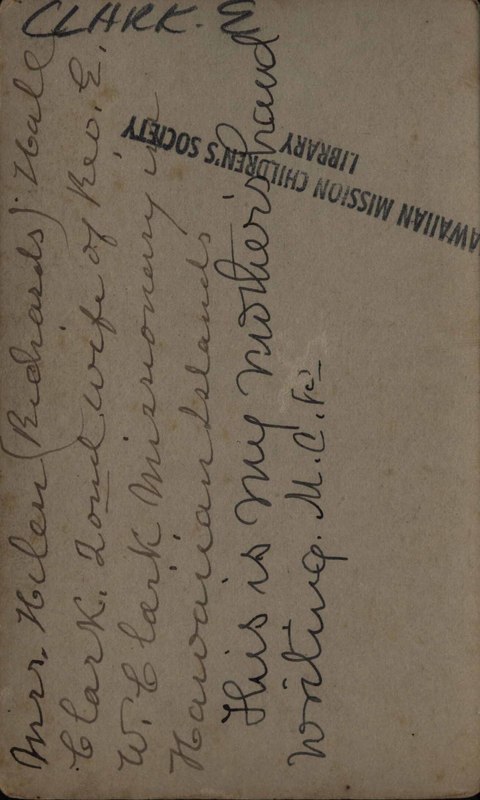 CLARK.
Mrs. Helen (Richards) Hall
Clark. 2ond wife of Rev. E.
W. Clark Missionary in
Hawaiian Islands
This is my mother's hand
writing. M. C. K.
HAWAIIAN MISSION CHILDREN'S SOCIETY
LIBRARY